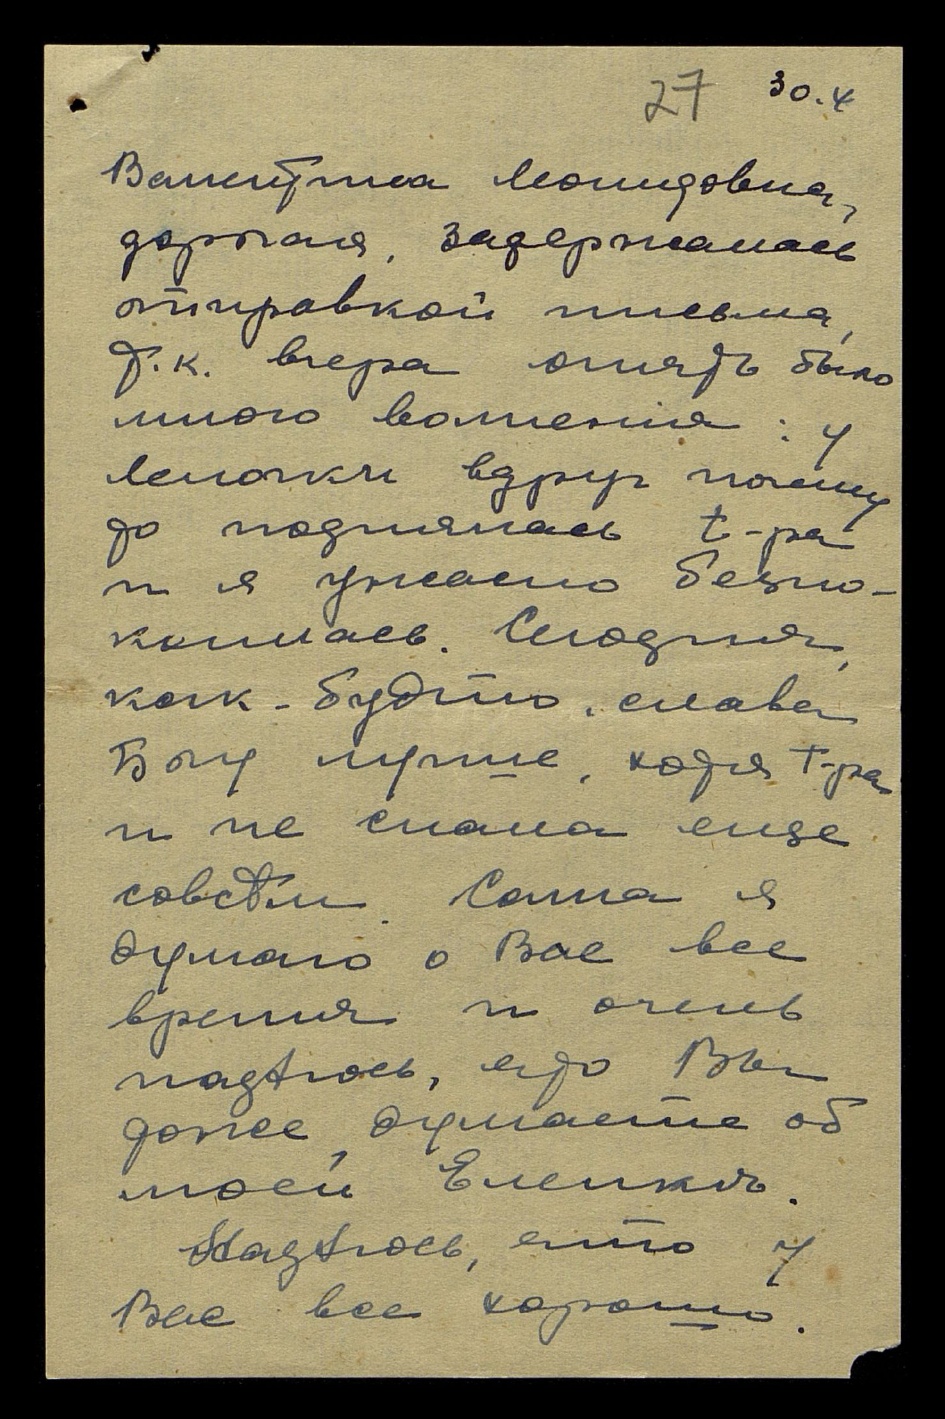 27 30.4
Валентина Леонидовна,
дорогая, задержалась
отправкой письма,
т.к. вчера опять было
много волнения: у
Леночки вдруг почему
то поднялась t-ра
и я ужасно безпо-
коилась. Сегодня,
как-будто, слава
Богу лучше, хотя t-ра
и не спала еще
совсѣм. Сама я
думаю о Вас все
время и очень
надѣюсь, что Вы
тоже думаете об
моей Еленкѣ.
Надѣюсь, что у
Вас все хорошо.